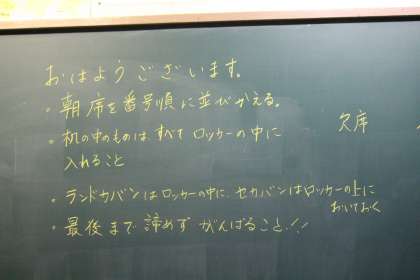 おはようございます。
・朝席を番号順に並びかえる。
・机の中のものは、すべてロッカーの中に
入れること
・ランドカバンはロッカーの中に、セカバンはロッカーの上に
おいておく
・最後まで諦めずがんばること!!
欠席